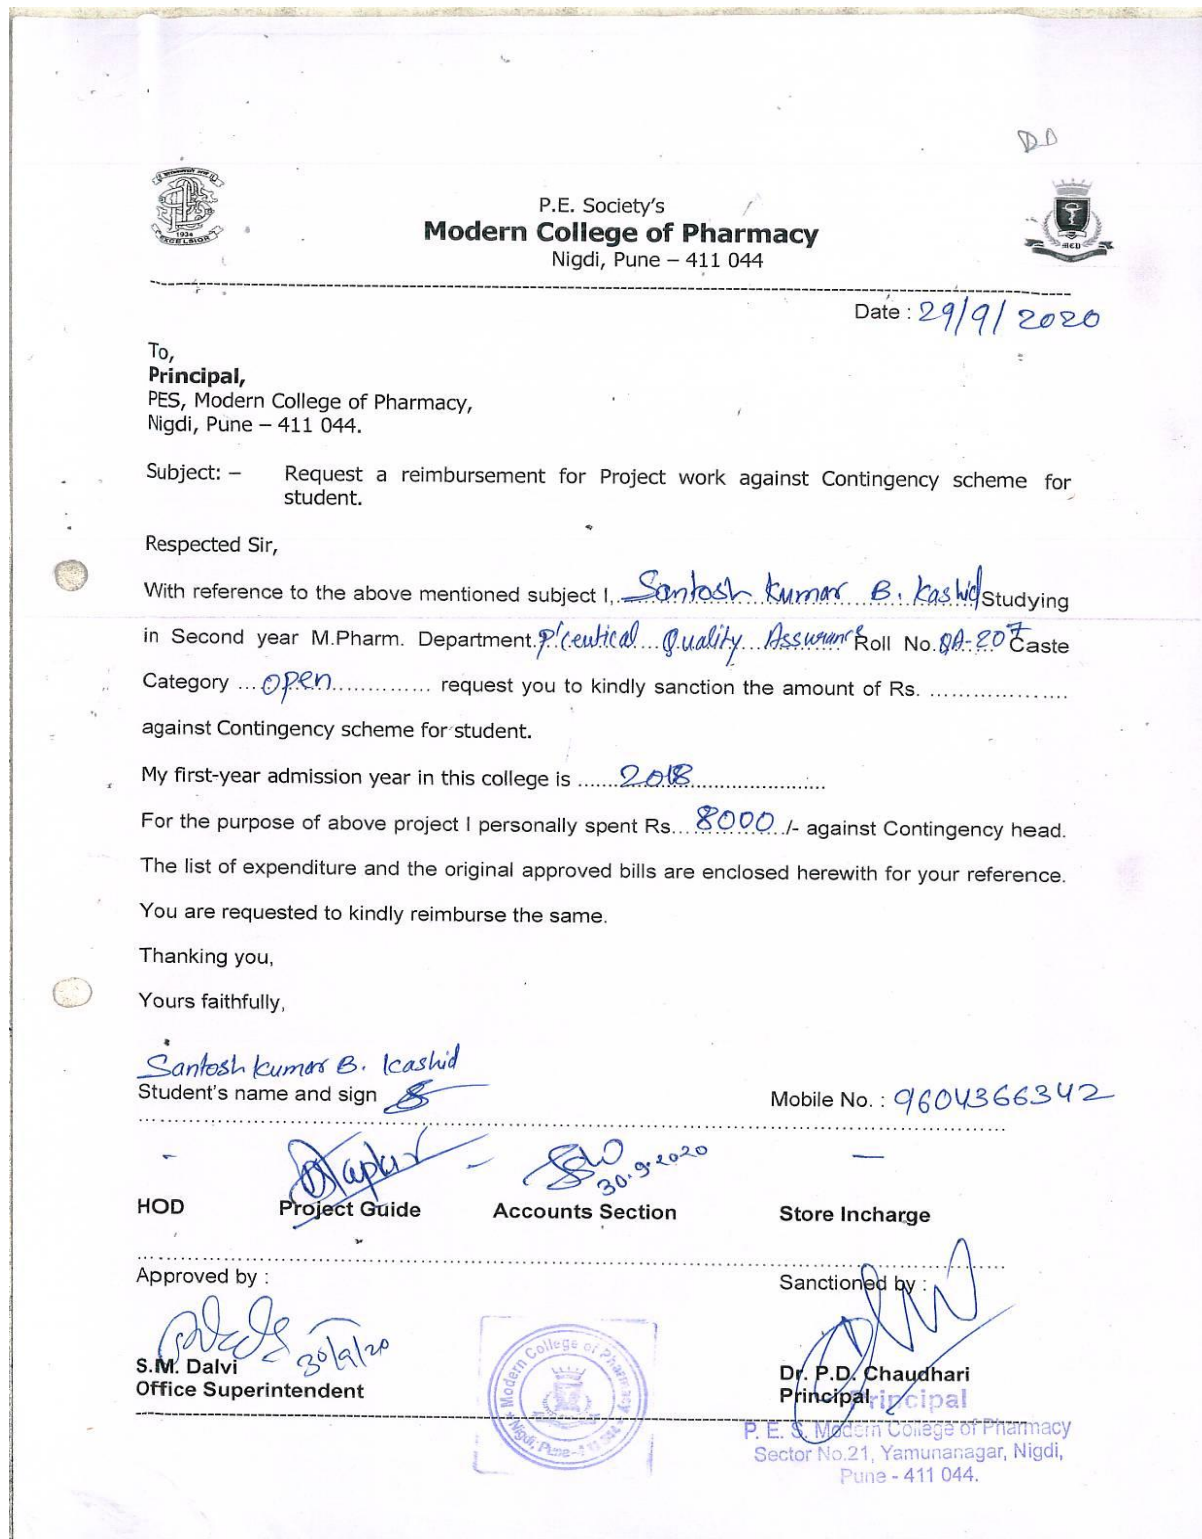 DD
1934
EXCELSIOR
P.E. Society's
Modern College of Pharmacy
Nigdi, Pune – 411 044
MCP
Date : 29/9/2020
To,
Principal,
PES, Modern College of Pharmacy,
Nigdi, Pune – 411 044.
Subject: – Request a reimbursement for Project work against Contingency scheme for
student.
Respected Sir,
With reference to the above mentioned subject I, Santosh Kumar B. Kashid Studying
in Second year M.Pharm. Department P'ceutical Quality Assurance Roll No. QA-207 Caste
Category ... open .............. request you to kindly sanction the amount of Rs. ....................
against Contingency scheme for student.
My first-year admission year in this college is ...... 2018 ......................
For the purpose of above project I personally spent Rs... 8000 /- against Contingency head.
The list of expenditure and the original approved bills are enclosed herewith for your reference.
You are requested to kindly reimburse the same.
Thanking you,
Yours faithfully,
Santosh Kumar B. Kashid
Student's name and sign
Mobile No. : 9604366342
30.9.2020
HOD Project Guide Accounts Section Store Incharge
Approved by : Sanctioned by :
30/9/20
S.M. Dalvi
Office Superintendent
Modern College of Pharmacy
Nigdi, Pune-411 044
Dr. P.D. Chaudhari
Principal
Principal
P. E. S. Modern College of Pharmacy
Sector No.21, Yamunanagar, Nigdi,
Pune - 411 044.